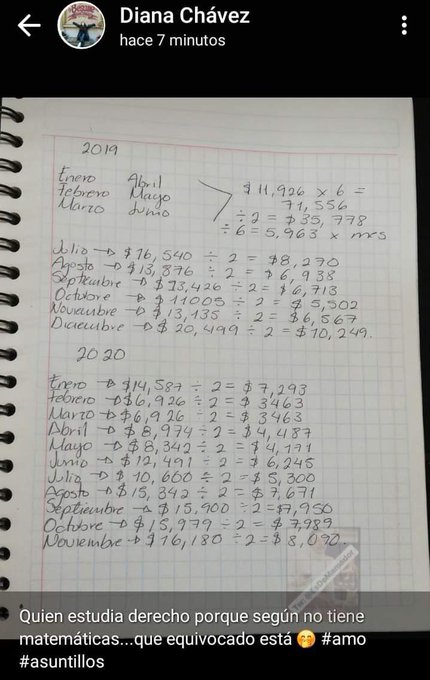 Diana Chávez
hace 7 minutos
2019
Enero Abril
Febrero Mayo
Marzo Junio
$11,926 x 6 =
71,556
÷2 = $35,778
÷6 = 5,963 x mes
Julio → $16,540 ÷ 2 = $8,270
Agosto → $13,876 ÷ 2 = $6,938
Septiembre → $13,426 ÷ 2 = $6,713
Octubre → $11005 ÷ 2 = $5,502
Noviembre → $13,135 ÷ 2 = $6,567
Diciembre → $20,499 ÷ 2 = $10,249.
2020
Enero → $14,587 ÷ 2 = $7,293
Febrero → $6,926 ÷ 2 = $3463
Marzo → $6,926 ÷ 2 = $3463
Abril → $8,974 ÷ 2 = $4,487
Mayo → $8,342 ÷ 2 = $4,171
Junio → $12,491 ÷ 2 = $6,245
Julio → $10,600 ÷ 2 = $5,300
Agosto → $15,342 ÷ 2 = $7,671
Septiembre → $15,900 ÷ 2 = $7,950
Octubre → $15,979 ÷ 2 = $7,989
Noviembre → $16,180 ÷ 2 = $8,090.
Quien estudia derecho porque según no tiene
matemáticas...que equivocado está 🤭 #amo
#asuntillos